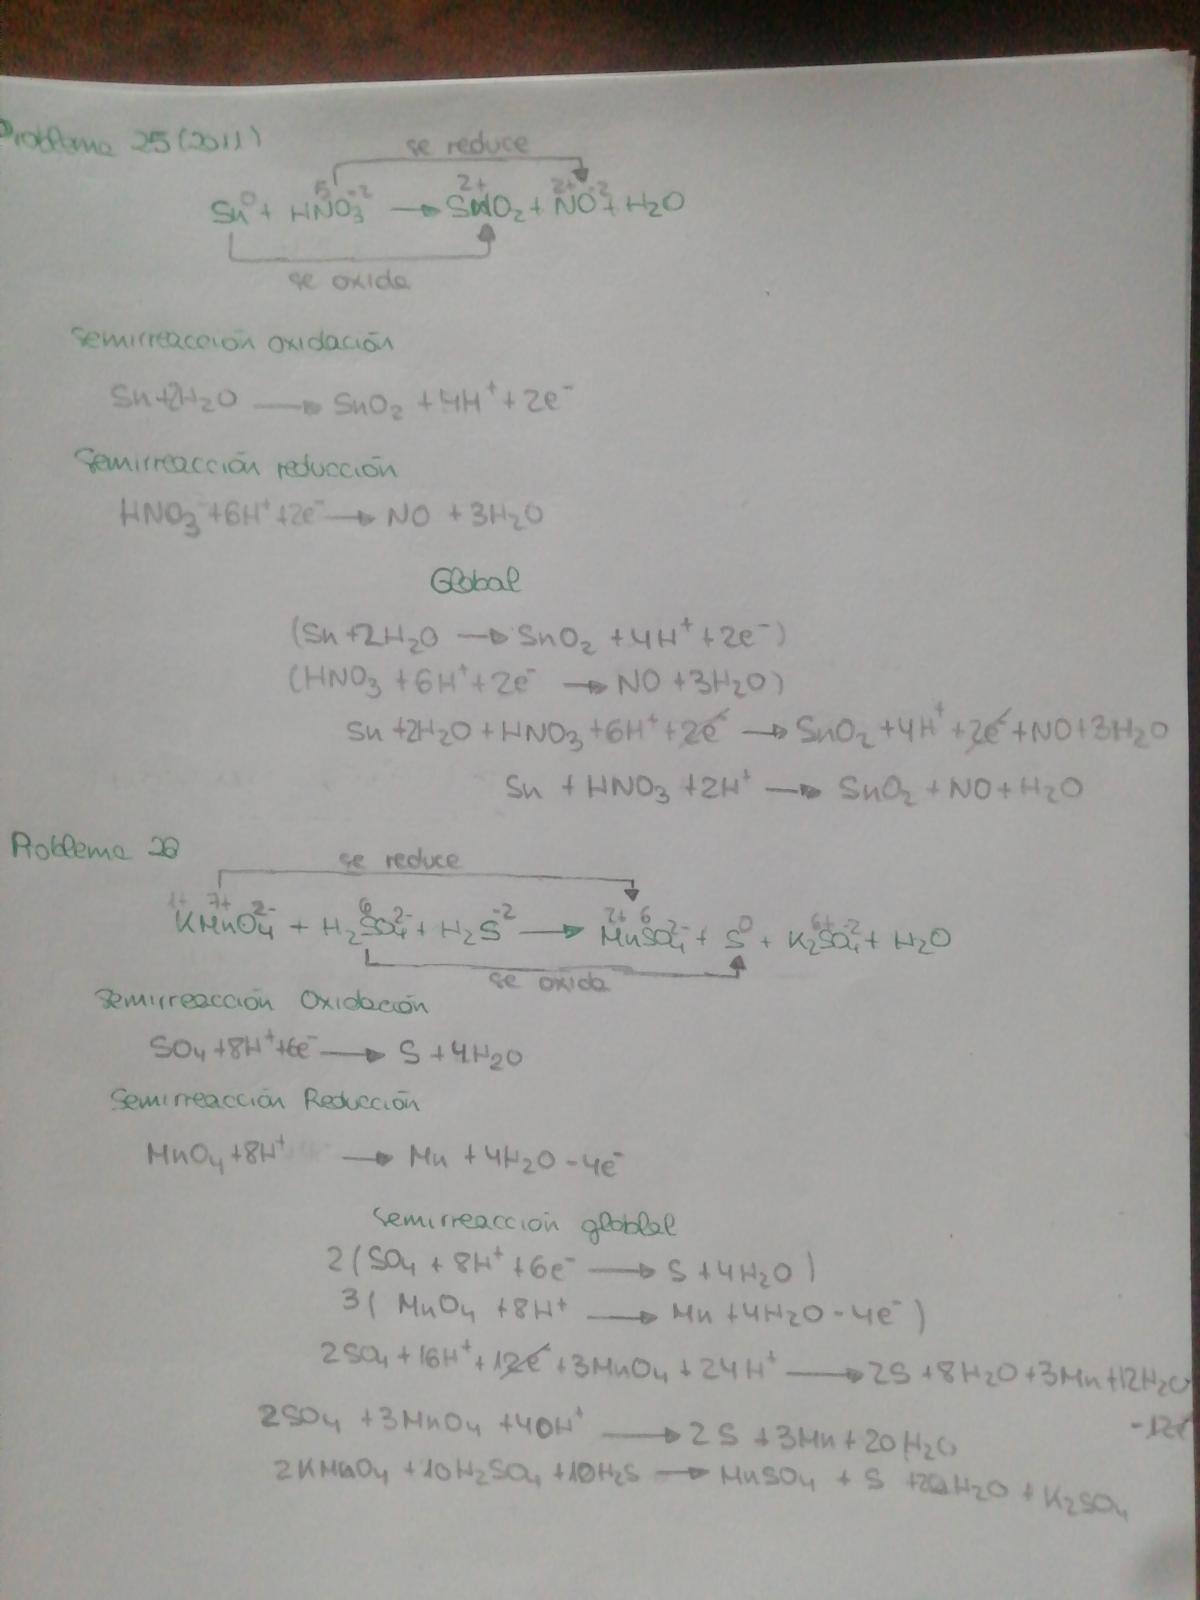 Problema 25 (2011)
se reduce
5 -2 2+ 2+ -2
Sn⁰ + HNO₃ → SnO₂ + NO + H₂O
se oxida
Semirreacción oxidación
Sn+2H₂O → SnO₂ + 4H⁺ + 2e⁻
Semirreacción reducción
HNO₃⁻+6H⁺+2e⁻ → NO + 3H₂O
Global
(Sn+2H₂O → SnO₂ + 4H⁺ + 2e⁻)
(HNO₃ + 6H⁺ + 2e⁻ → NO + 3H₂O)
Sn + 2H₂O + HNO₃ + 6H⁺ + 2e⁻ → SnO₂ + 4H⁺ + 2e⁻ + NO + 3H₂O
Sn + HNO₃ + 2H⁺ → SnO₂ + NO + H₂O
Problema
se reduce
1+ 7+ 2- 6 2- -2 2+ 6 2- 0 6+ -2
KMnO₄ + H₂SO₄ + H₂S → MnSO₄ + S + K₂SO₄ + H₂O
se oxida
Semirreacción Oxidación
SO₄ + 8H⁺ + 6e⁻ → S + 4H₂O
Semirreacción Reducción
MnO₄ + 8H⁺ → Mn + 4H₂O - 4e⁻
Semirreacción globlal
2(SO₄ + 8H⁺ + 6e⁻ → S + 4H₂O)
3(MnO₄ + 8H⁺ → Mn + 4H₂O - 4e⁻)
2SO₄ + 16H⁺ + 12e⁻ + 3MnO₄ + 24H⁺ → 2S + 8H₂O + 3Mn + 12H₂O
2SO₄ + 3MnO₄ + 40H⁺ → 2S + 3Mn + 20H₂O
2KMnO₄ + 10H₂SO₄ + 10H₂S → MnSO₄ + S + 20H₂O + K₂SO₄